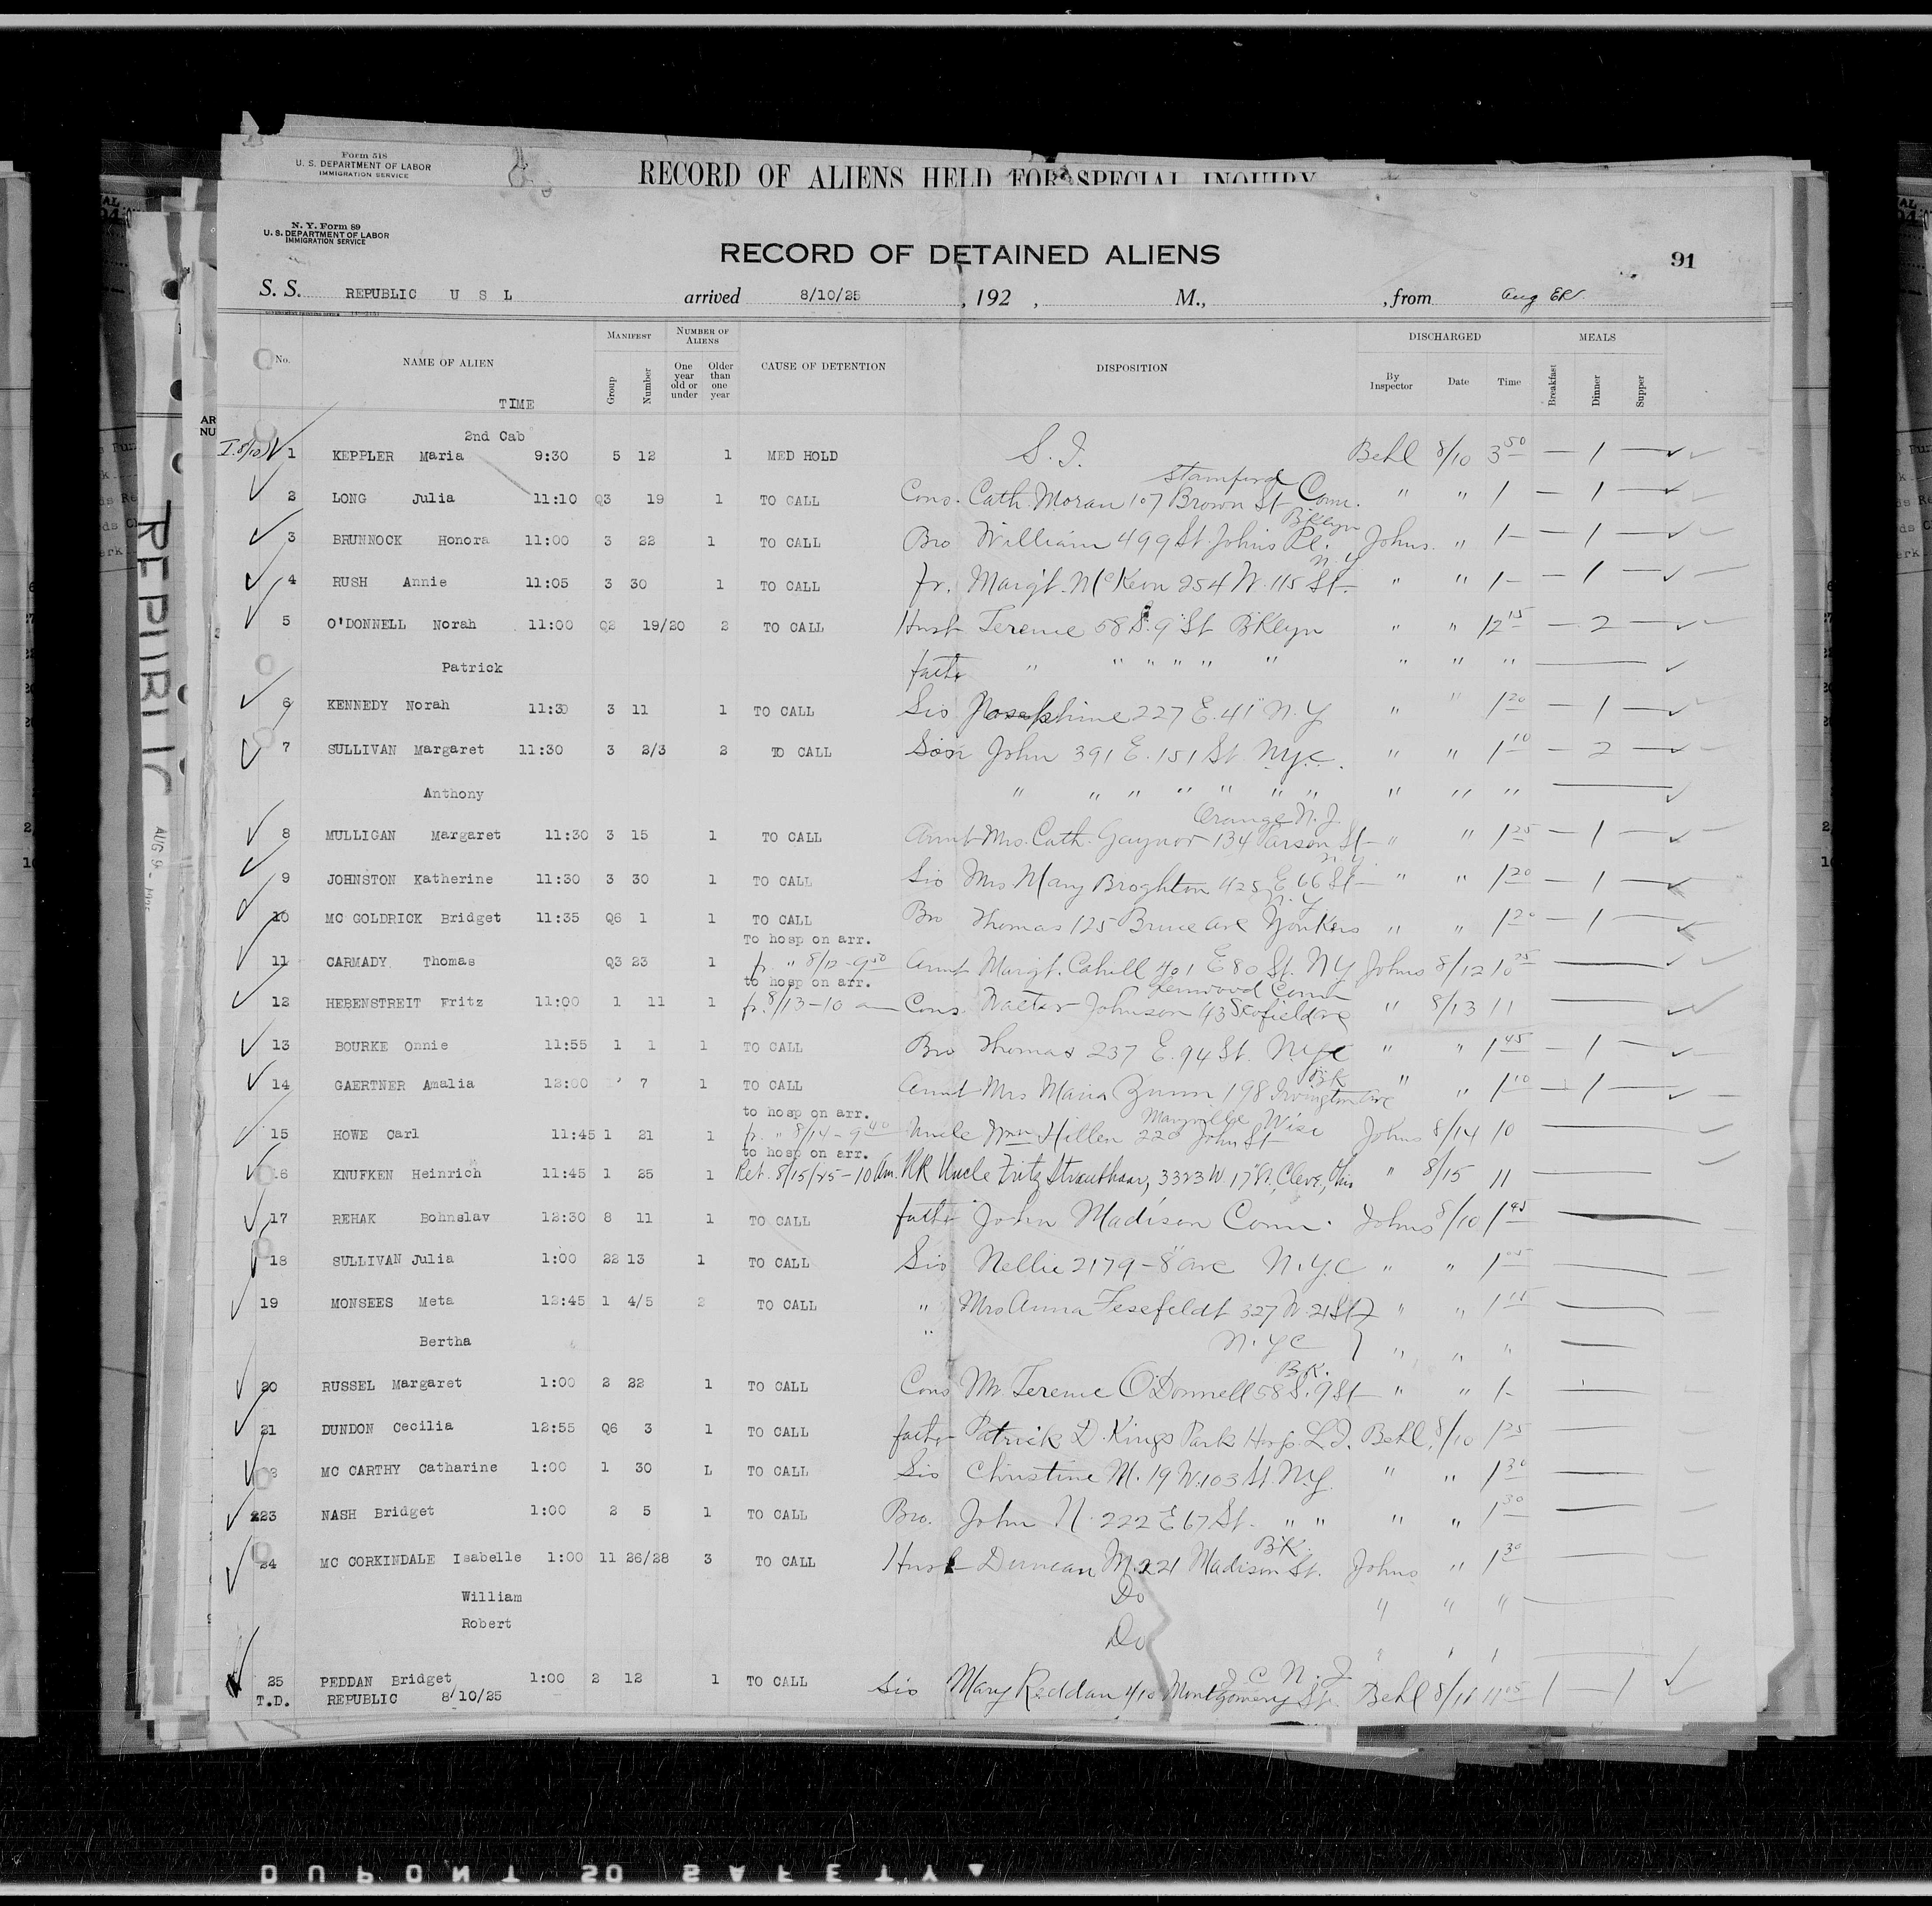 Form 518
U. S. DEPARTMENT OF LABOR
IMMIGRATION SERVICE
RECORD OF ALIENS HELD FOR SPECIAL INQUIRY
N. Y. Form 89
U. S. DEPARTMENT OF LABOR
IMMIGRATION SERVICE
RECORD OF DETAINED ALIENS
91
S. S. REPUBLIC U S L arrived 8/10/25, 192 , M., , from Aug
No. NAME OF ALIEN TIME MANIFEST Group Number NUMBER OF ALIENS One year old or under Older than one year CAUSE OF DETENTION DISPOSITION DISCHARGED By Inspector Date Time MEALS Breakfast Dinner Supper
2nd Cab
1 KEPPLER Maria 9:30 5 12 1 MED HOLD S. I. Behl 8/10 3 50 — 1 —
Stamford
2 LONG Julia 11:10 Q3 19 1 TO CALL Cons. Cath. Moran 107 Brown St Conn. " " 1 — 1 —
Bklyn
3 BRUNNOCK Honora 11:00 3 22 1 TO CALL Bro William 499 St. Johns Pl. Johns. " 1 — 1 —
N Y
4 RUSH Annie 11:05 3 30 1 TO CALL fr. Margt. McKeon 254 W. 115 St. " " 1 — 1 —
5 O'DONNELL Norah 11:00 Q2 19/20 2 TO CALL Husb Terence 58 S. 9 St Bklyn " " 12 15 — 2 —
Patrick father " " " " " " " " "
6 KENNEDY Norah 11:30 3 11 1 TO CALL Sis Josephine 227 E. 41 N. Y " " 1 20 — 1 —
7 SULLIVAN Margaret 11:30 3 2/3 2 TO CALL Son John 391 E. 151 St. N.Y.C. " " 1 10 — 2 —
Anthony " " " " " " " " " "
Orange N. J.
8 MULLIGAN Margaret 11:30 3 15 1 TO CALL Aunt Mrs. Cath. Gaynor 134 Parson St " " 1 25 — 1 —
N. Y.
9 JOHNSTON Katherine 11:30 3 30 1 TO CALL Sis Mrs Mary Broghton 425 E 66 St " " 1 20 — 1 —
N. Y
10 MC GOLDRICK Bridget 11:35 Q6 1 1 TO CALL Bro Thomas 125 Bruce Ave Yonkers " " 1 20 — 1 —
To hosp on arr.
11 CARMADY Thomas Q3 23 1 fr. " 8/12 - 9 50 Aunt Margt. Cahill 401 E 80 St. N Y Johns 8/12 10 25
to hosp on arr.
12 HEBENSTREIT Fritz 11:00 1 11 1 fr. 8/13 - 10 am Cons. Walter Johnson 43 Scofield Ave Conn " 8/13 11
13 BOURKE Onnie 11:55 1 1 1 TO CALL Bro Thomas 237 E. 94 St. N.Y.C " " 1 45 — 1 —
BK
14 GAERTNER Amalia 12:00 1 7 1 TO CALL Aunt Mrs Maria Zumm 198 Irvington Ave " " 1 10 — 1 —
to hosp on arr.
Maryville Wisc
15 HOWE Carl 11:45 1 21 1 fr. " 8/14 - 9 40 Uncle Wm Hillen 220 John St Johns 8/14 10
to hosp on arr.
16 KNUFKEN Heinrich 11:45 1 25 1 Ret. 8/15/25 - 10 am. RR Uncle Fritz Strauthaar, 3323 W. 17 St., Cleve., Ohio " 8/15 11
17 REHAK Bohnslav 12:30 8 11 1 TO CALL father John Madison Conn. Johns 8/10 1 45
18 SULLIVAN Julia 1:00 22 13 1 TO CALL Sis Nellie 2179 - 8" Ave N.Y.C " " 1 05
19 MONSEES Meta 12:45 1 4/5 2 TO CALL " Mrs Anna Fesefeldt 327 W. 21 St " "
Bertha " N.Y C " " "
BK.
20 RUSSEL Margaret 1:00 2 22 1 TO CALL Cons Mr. Terence O'Donnell 58 S. 9 St " " 1
21 DUNDON Cecilia 12:55 Q6 3 1 TO CALL father Patrick D. Kings Park Hosp. L. I. Behl. 8/10 1 25
MC CARTHY Catharine 1:00 1 30 L TO CALL Sis Christine M. 19 W. 103 St. N.Y. " " 1 30
223 NASH Bridget 1:00 2 5 1 TO CALL Bro. John N. 222 E 67 St. " " " " 1 30
BK.
24 MC CORKINDALE Isabelle 1:00 11 26/28 3 TO CALL Husb Duncan M. 221 Madison St. Johns " 1 30
William Do " " "
Robert Do " " "
J C N. J.
25 PEDDAN Bridget 1:00 2 12 1 TO CALL Sis Mary Reddan 410 Montgomery St. Behl 8/11 11 05 1 — 1
T.D. REPUBLIC 8/10/25
REPUBLIC
DUPONT SAFETY